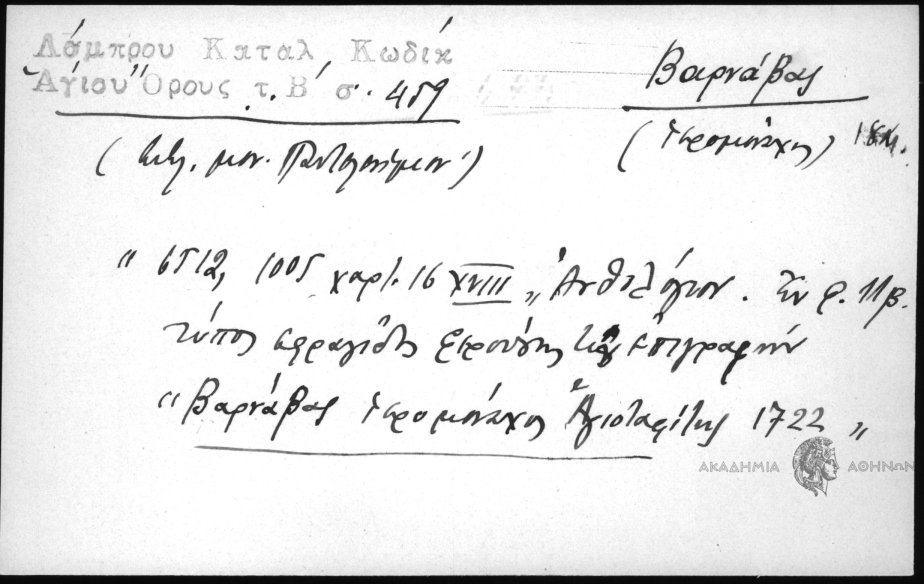 Λάμπρου Καταλ Κωδίκ
Ἁγίου Ὄρους τ. Β΄ σ. 459
Βαρνάβας
(Ἱερομόναχος)
( μον. Παντελεήμον΄)
" 6512, 1005 χαρτ. 16 XVIII „ Ἀνθολόγιον. Ἐν φ. 11β.
τύπος σφραγῖδος φερούσης τὴν ἐπιγραφὴν
" Βαρνάβας Ἱερομόναχος Ἁγιοταφίτης 1722 „
ΑΚΑΔΗΜΙΑ ΑΘΗΝΩΝ